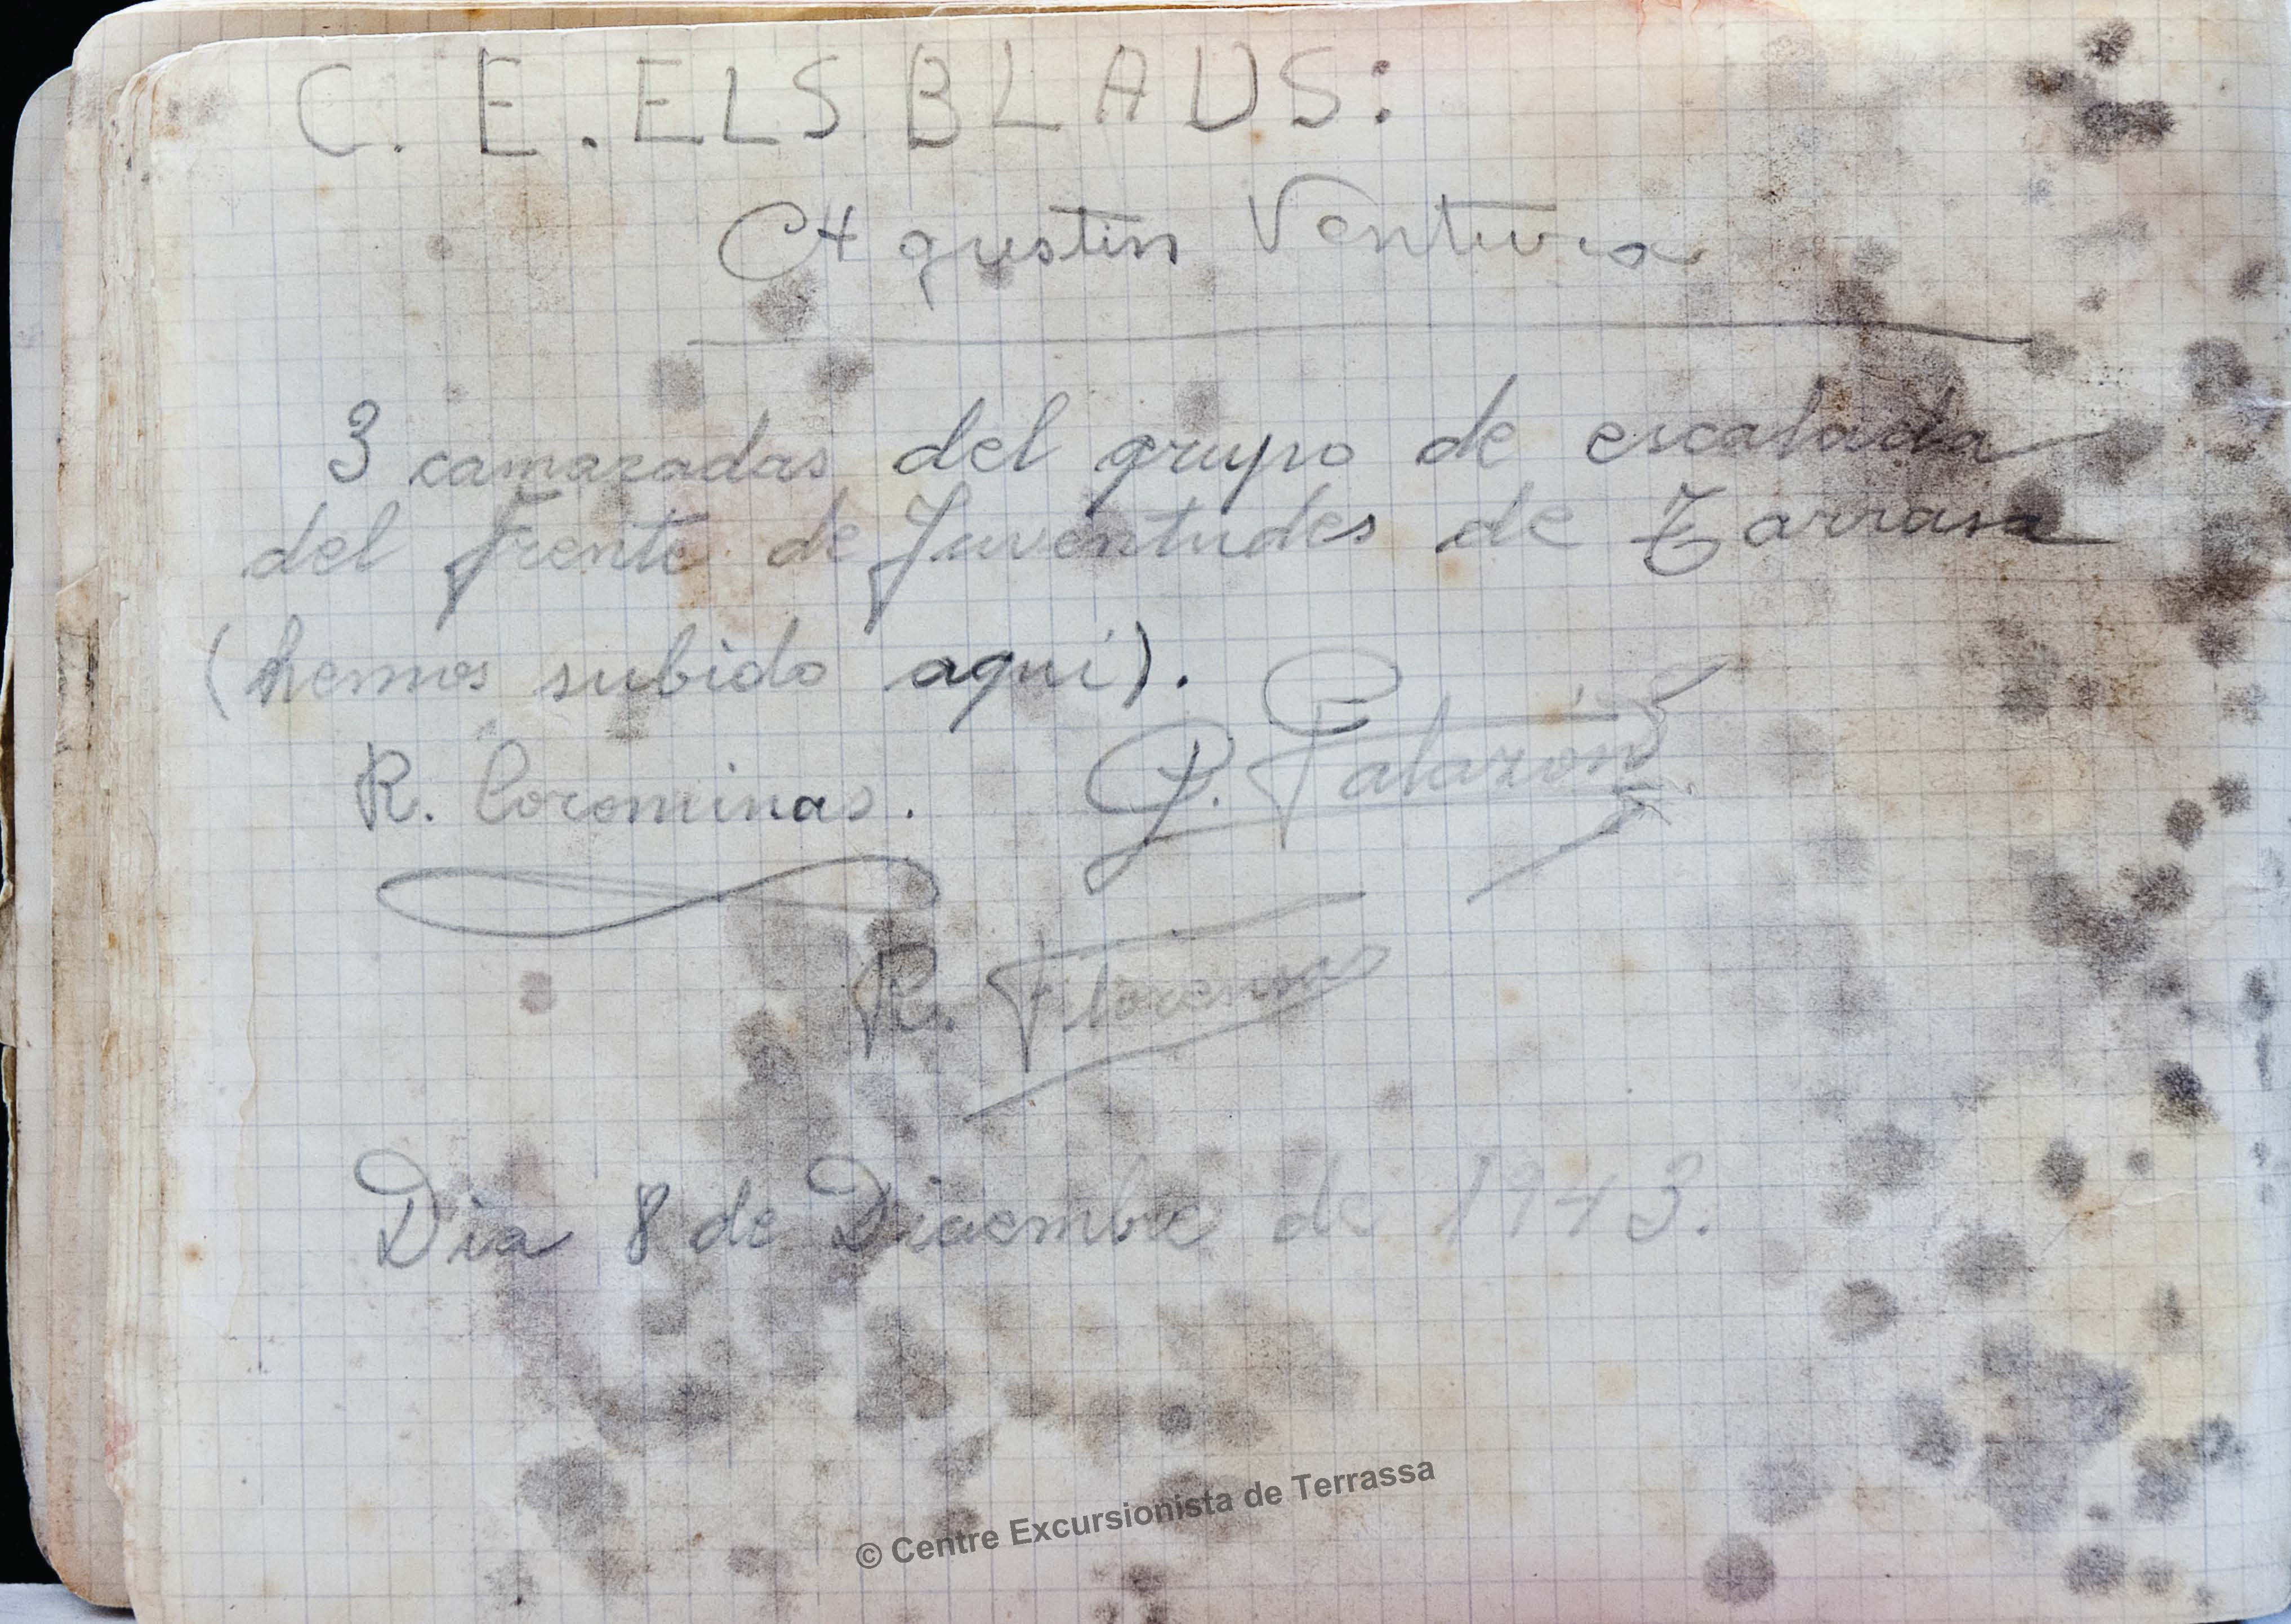 C. E. ELS BLAUS:
Agustin Ventura
3 camaradas del grupo de escalada
del Frente de Juventudes de Tarrasa
(hemos subido aquí).
R. Coreminas. P. Palazón
R. Florensa
Dia 8 de Diciembre de 1943.
© Centre Excursionista de Terrassa